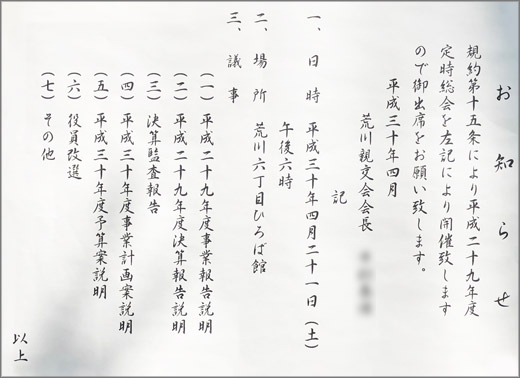 お知らせ
規約第十五条により平成二十九年度
定時総会を左記により開催致します
ので御出席をお願い致します。
平成三十年四月
荒川親交会会長
記
一、日時 平成三十年四月二十一日（土）
午後六時
二、場所 荒川六丁目ひろば館
三、議事
（一）平成二十九年度事業報告説明
（二）平成二十九年度決算報告説明
（三）決算監査報告
（四）平成三十年度事業計画案説明
（五）平成三十年度予算案説明
（六）役員改選
（七）その他
以上